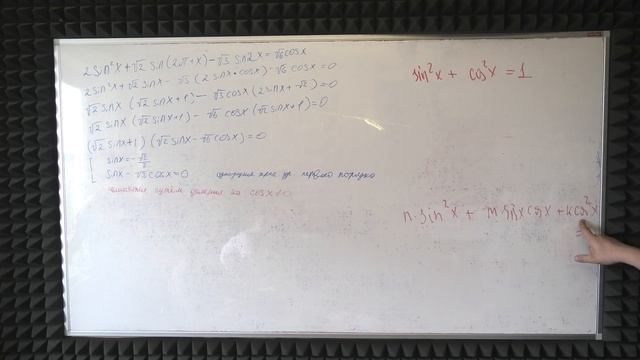 2 sin²x + √2 sin(2π + x) - √3 sin2x = √6 cosx
2 sin²x + √2 sinx - √3 (2 sinx · cosx) - √6 cosx = 0
√2 sinx (√2 sinx + 1) - √3 cosx (2 sinx + √2) = 0
√2 sinx (√2 sinx + 1) - √6 cosx (√2 sinx + 1) = 0
(√2 sinx + 1) (√2 sinx - √6 cosx) = 0
sinx = -√2/2
sinx - √3 cosx = 0 первого порядка
путём деления на cosx ≠ 0
sin²x + cos²x = 1
n · sin²x + m sinx cosx + k cos²x
=